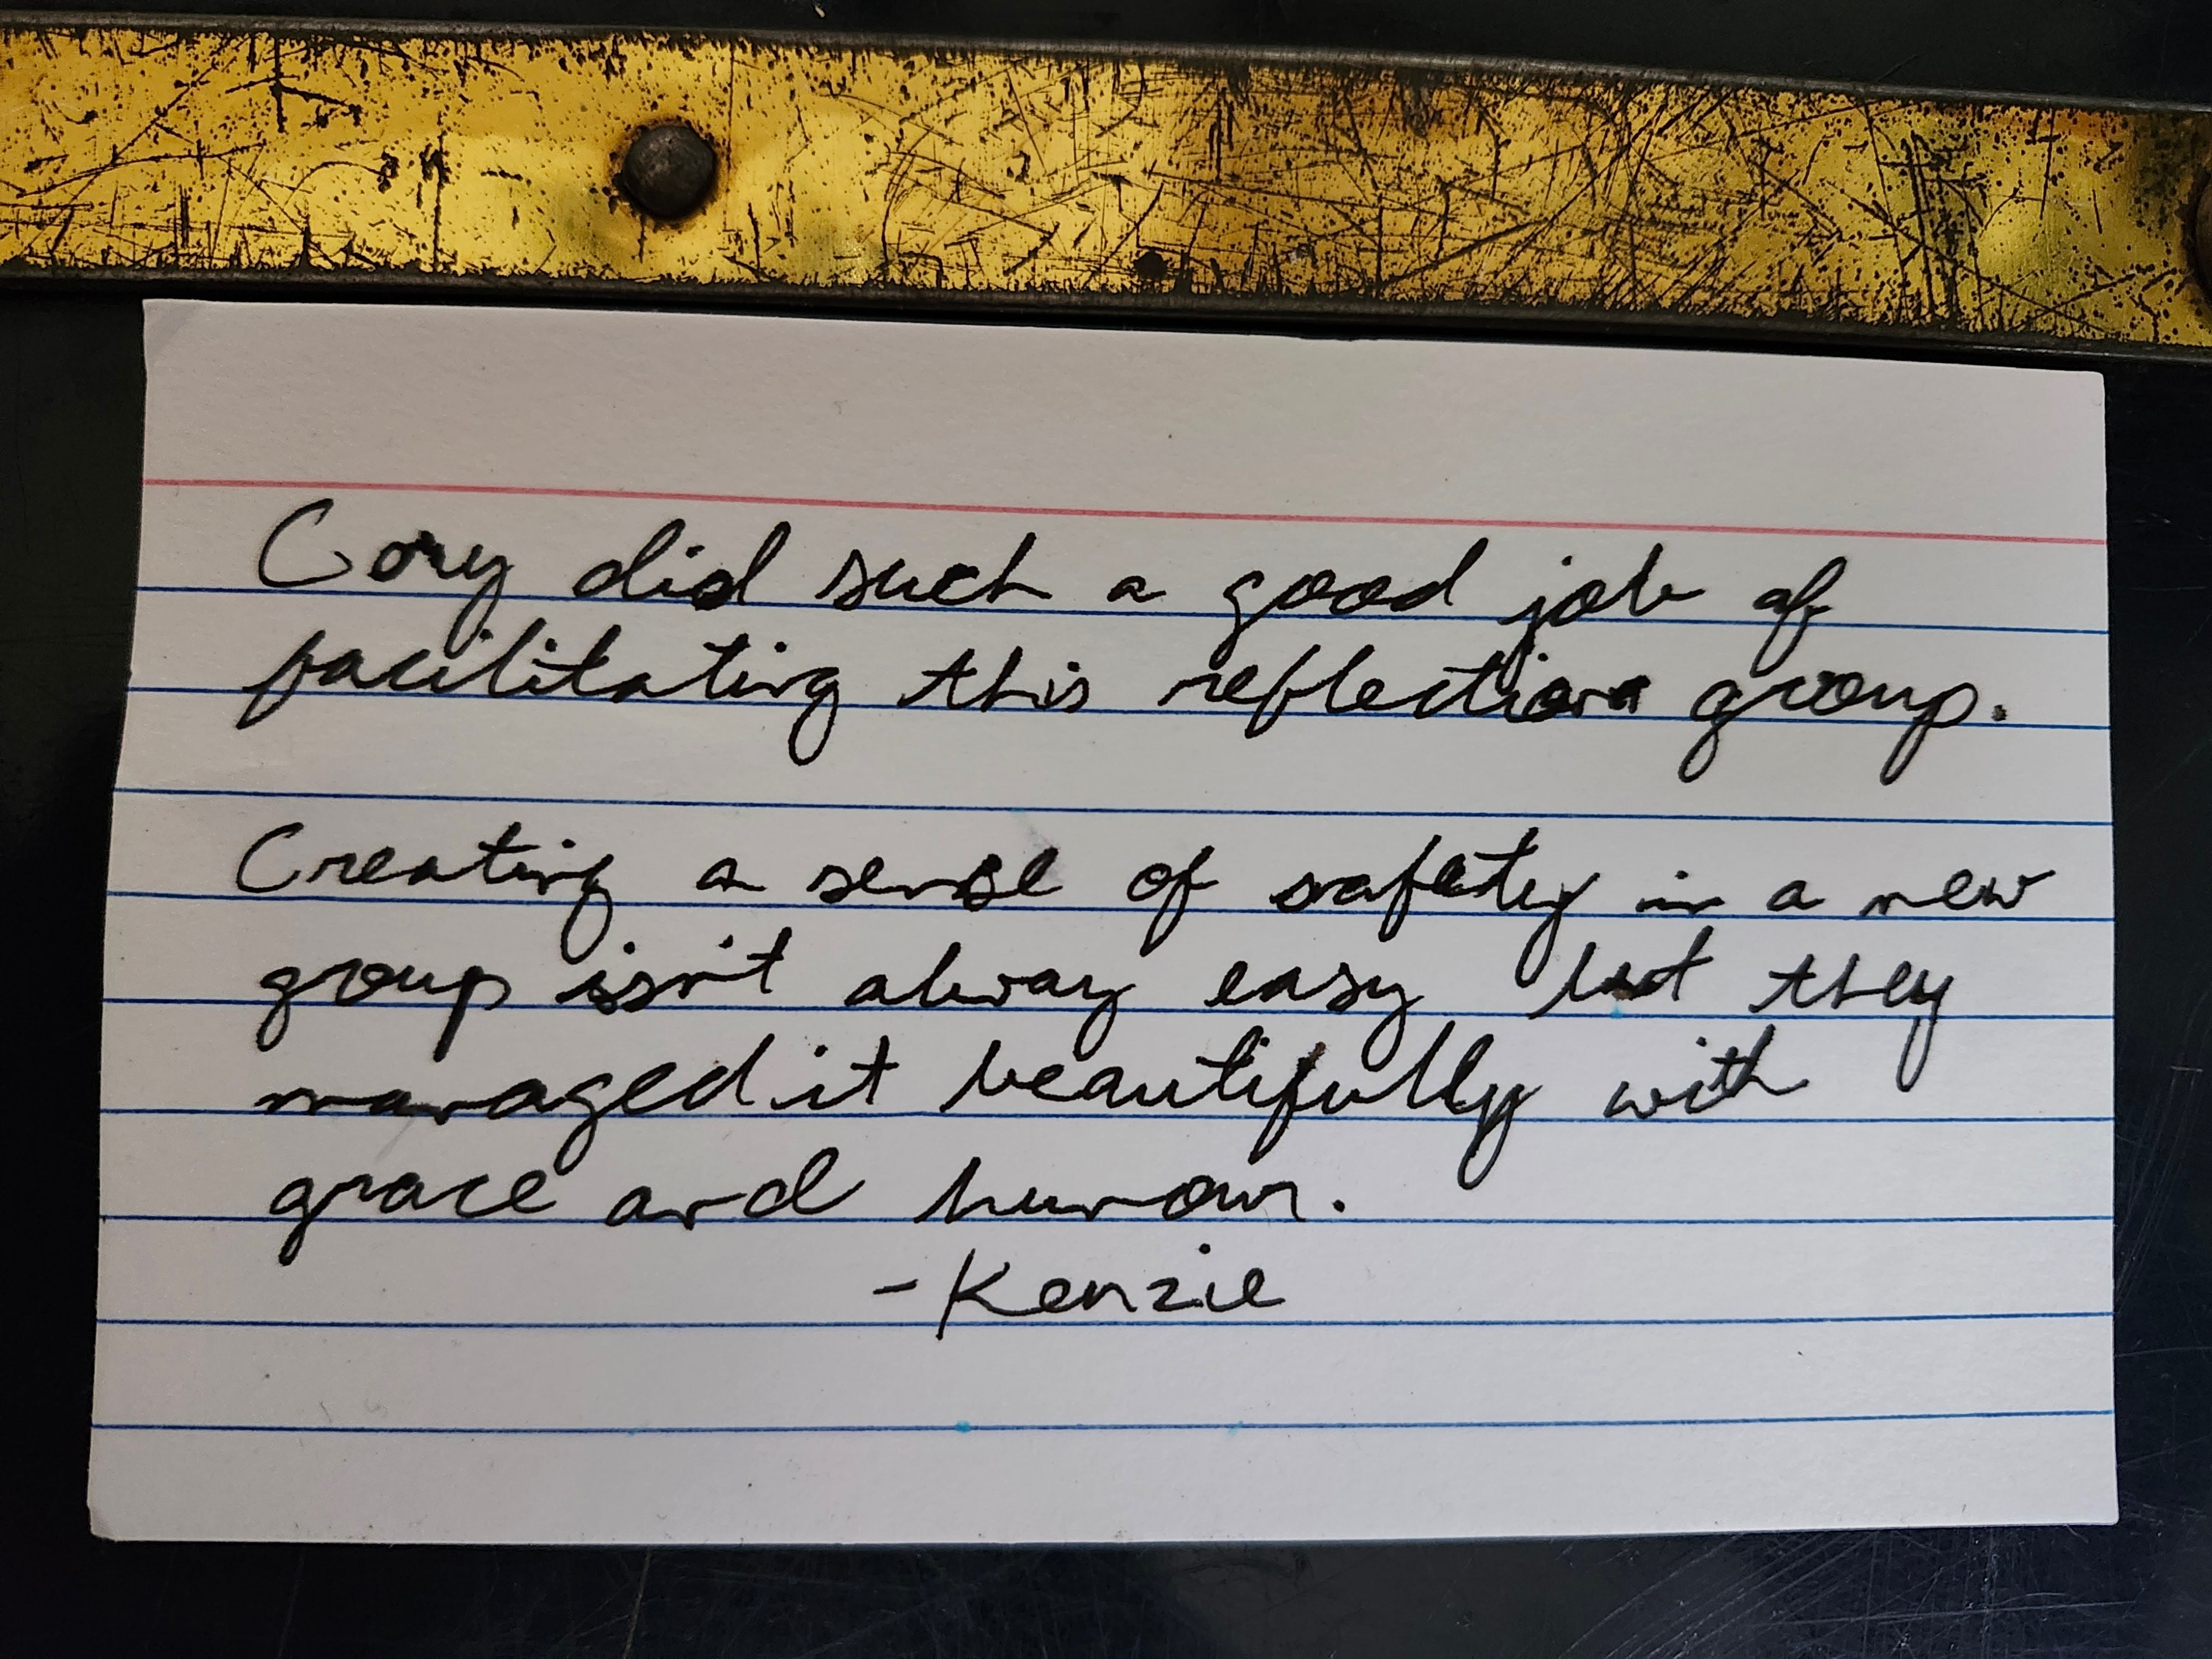 Cory did such a good job of
facilitating this reflection group.
Creating a sense of safety in a new
group isn't alway easy but they
managed it beautifully with
grace and humour.
-Kenzie